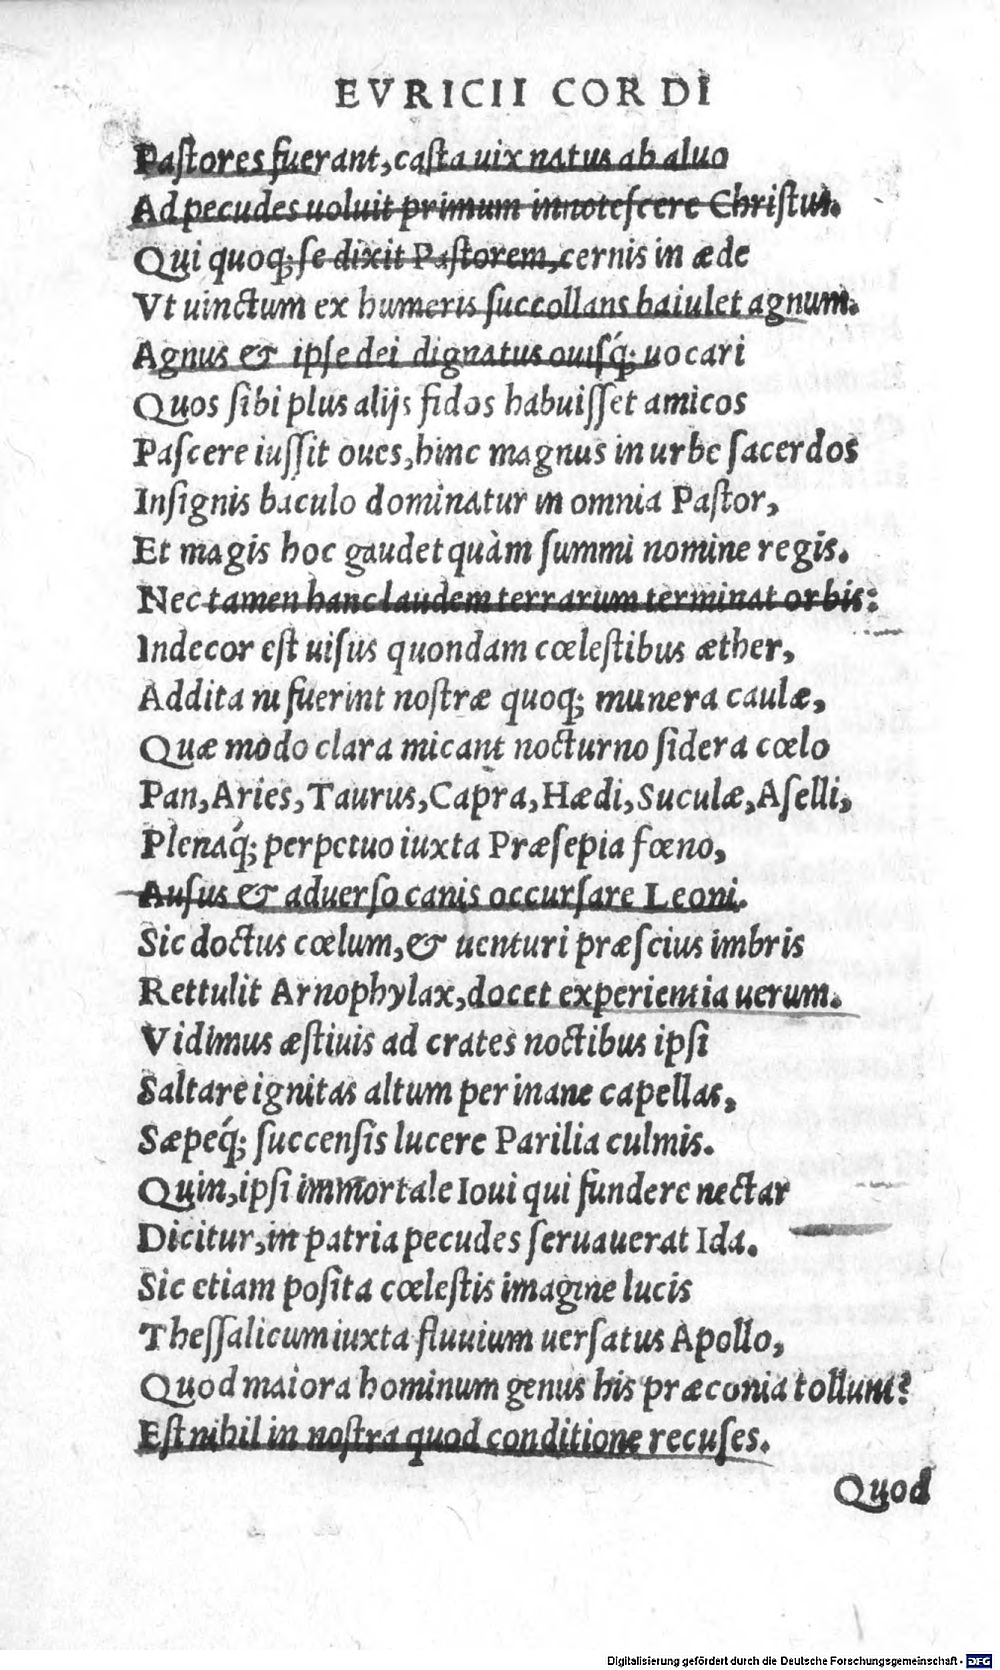 EVRICII CORDI
Paſtores fuerant, caſta uix natus ab aluo
Ad pecudes uoluit primum innoteſcere Chriſtus.
Qui quoq; ſe dixit Paſtorem, cernis in æde
Vt uinctum ex humeris ſuccollans baiulet agnum.
Agnus & ipſe dei dignatus ouiſq́; uocari
Quos ſibi plus alijs fidos habuiſſet amicos
Paſcere iuſſit oues, hinc magnus in urbe ſacerdos
Inſignis baculo dominatur in omnia Paſtor,
Et magis hoc gaudet quàm ſummi nomine regis.
Nec tamen hanc laudem terrarum terminat orbis:
Indecor eſt uiſus quondam cœleſtibus æther,
Addita ni fuerint noſtræ quoq; munera caulæ,
Quæ modo clara micant nocturno ſidera cœlo
Pan, Aries, Taurus, Capra, Hædi, Suculæ, Aſelli,
Plenaq́; perpetuo iuxta Præſepia fœno,
Auſus & aduerſo canis occurſare Leoni.
Sic doctus cœlum, & uenturi præſcius imbris
Rettulit Arnophylax, docet experientia uerum.
Vidimus æſtiuis ad crates noctibus ipſi
Saltare ignitas altum per inane capellas,
Sæpeq́; ſuccenſis lucere Parilia culmis.
Quin, ipſi immortale Ioui qui fundere nectar
Dicitur, in patria pecudes ſeruauerat Ida.
Sic etiam poſita cœleſtis imagine lucis
Theſſalicum iuxta fluuium uerſatus Apollo,
Quod maiora hominum genus his præconia tollunt?
Eſt nihil in noſtra quod conditione recuſes.
Quod
Digitalisierung gefördert durch die Deutsche Forschungsgemeinschaft - DFG